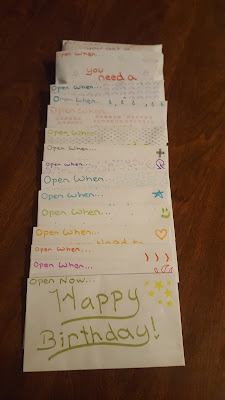 Open When...
you
need a
Open When...
Open When...
Open When...
Open When...
Open When...
Open When...
Open When...
Open When...
Open When...
Open When...
Open When...
Open When...
Open Now...
Happy
Birthday!